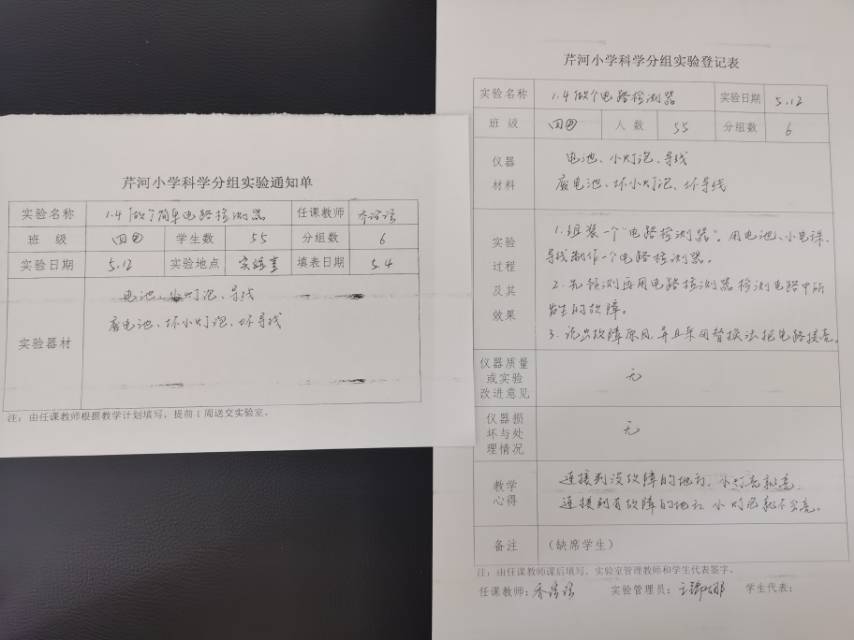 芹河小学科学分组实验通知单
实验名称 1.4做个简单电路检测器 任课教师
班 级 四④ 学生数 55 分组数 6
实验日期 5.12 实验地点 实验室 填表日期 5.4
实验器材
电池、小灯泡、导线
废电池、坏小灯泡、坏导线
注:由任课教师根据教学计划填写,提前1周送交实验室。
芹河小学科学分组实验登记表
实验名称 1.4做个电路检测器 实验日期 5.12
班 级 四④ 人 数 55 分组数 6
仪器
材料
电池、小灯泡、导线
废电池、坏小灯泡、坏导线
实验
过程
及其
效果
1.组装一个"电路检测器"。用电池、小电珠、
导线制作一个电路检测器。
2.先预测再用电路检测器检测电路中所
发生的故障。
3.说出故障原因,并且采用替换法把电路接亮。
仪器质量
或实验
改进意见
无
仪器损
坏与处
理情况
无
教学
心得
连接到没故障的地方,小灯泡就亮
连接到有故障的地方 小灯泡就不会亮。
备注 (缺席学生)
注:由任课教师课后填写,实验室管理教师和学生代表签字。
任课教师: 实验管理员: 学生代表: